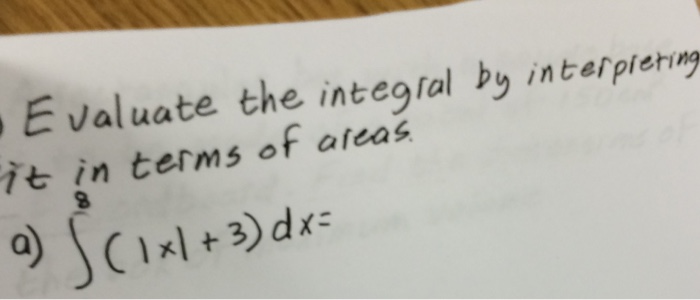 Evaluate the integral by interpreting
it in terms of areas.
8
a) ∫(|x|+3) dx=